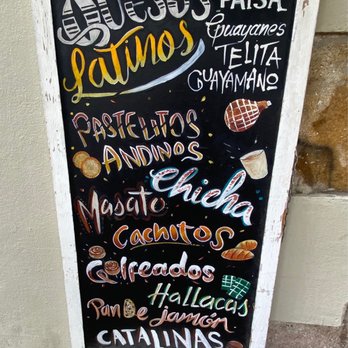 Quesos
Latinos
PAISA
Guayanes
TELITA
GUAYAMANO
PASTELITOS
ANDINOS
Chicha
Masato
Cachitos
Golfeados
Hallacas
Pan de jamón
CATALINAS